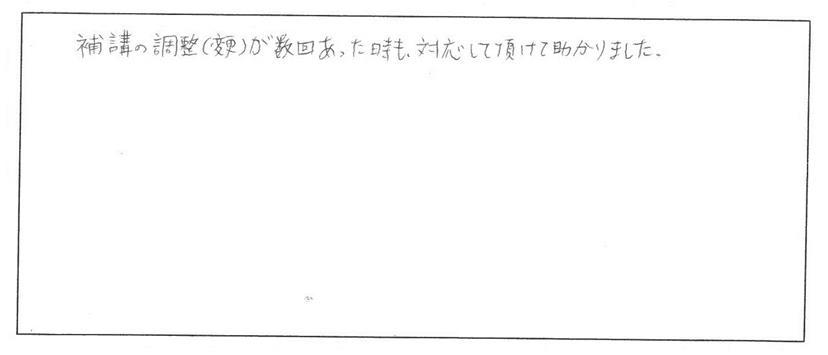 補講の調整(変更)が数回あった時も、対応して頂けて助かりました。